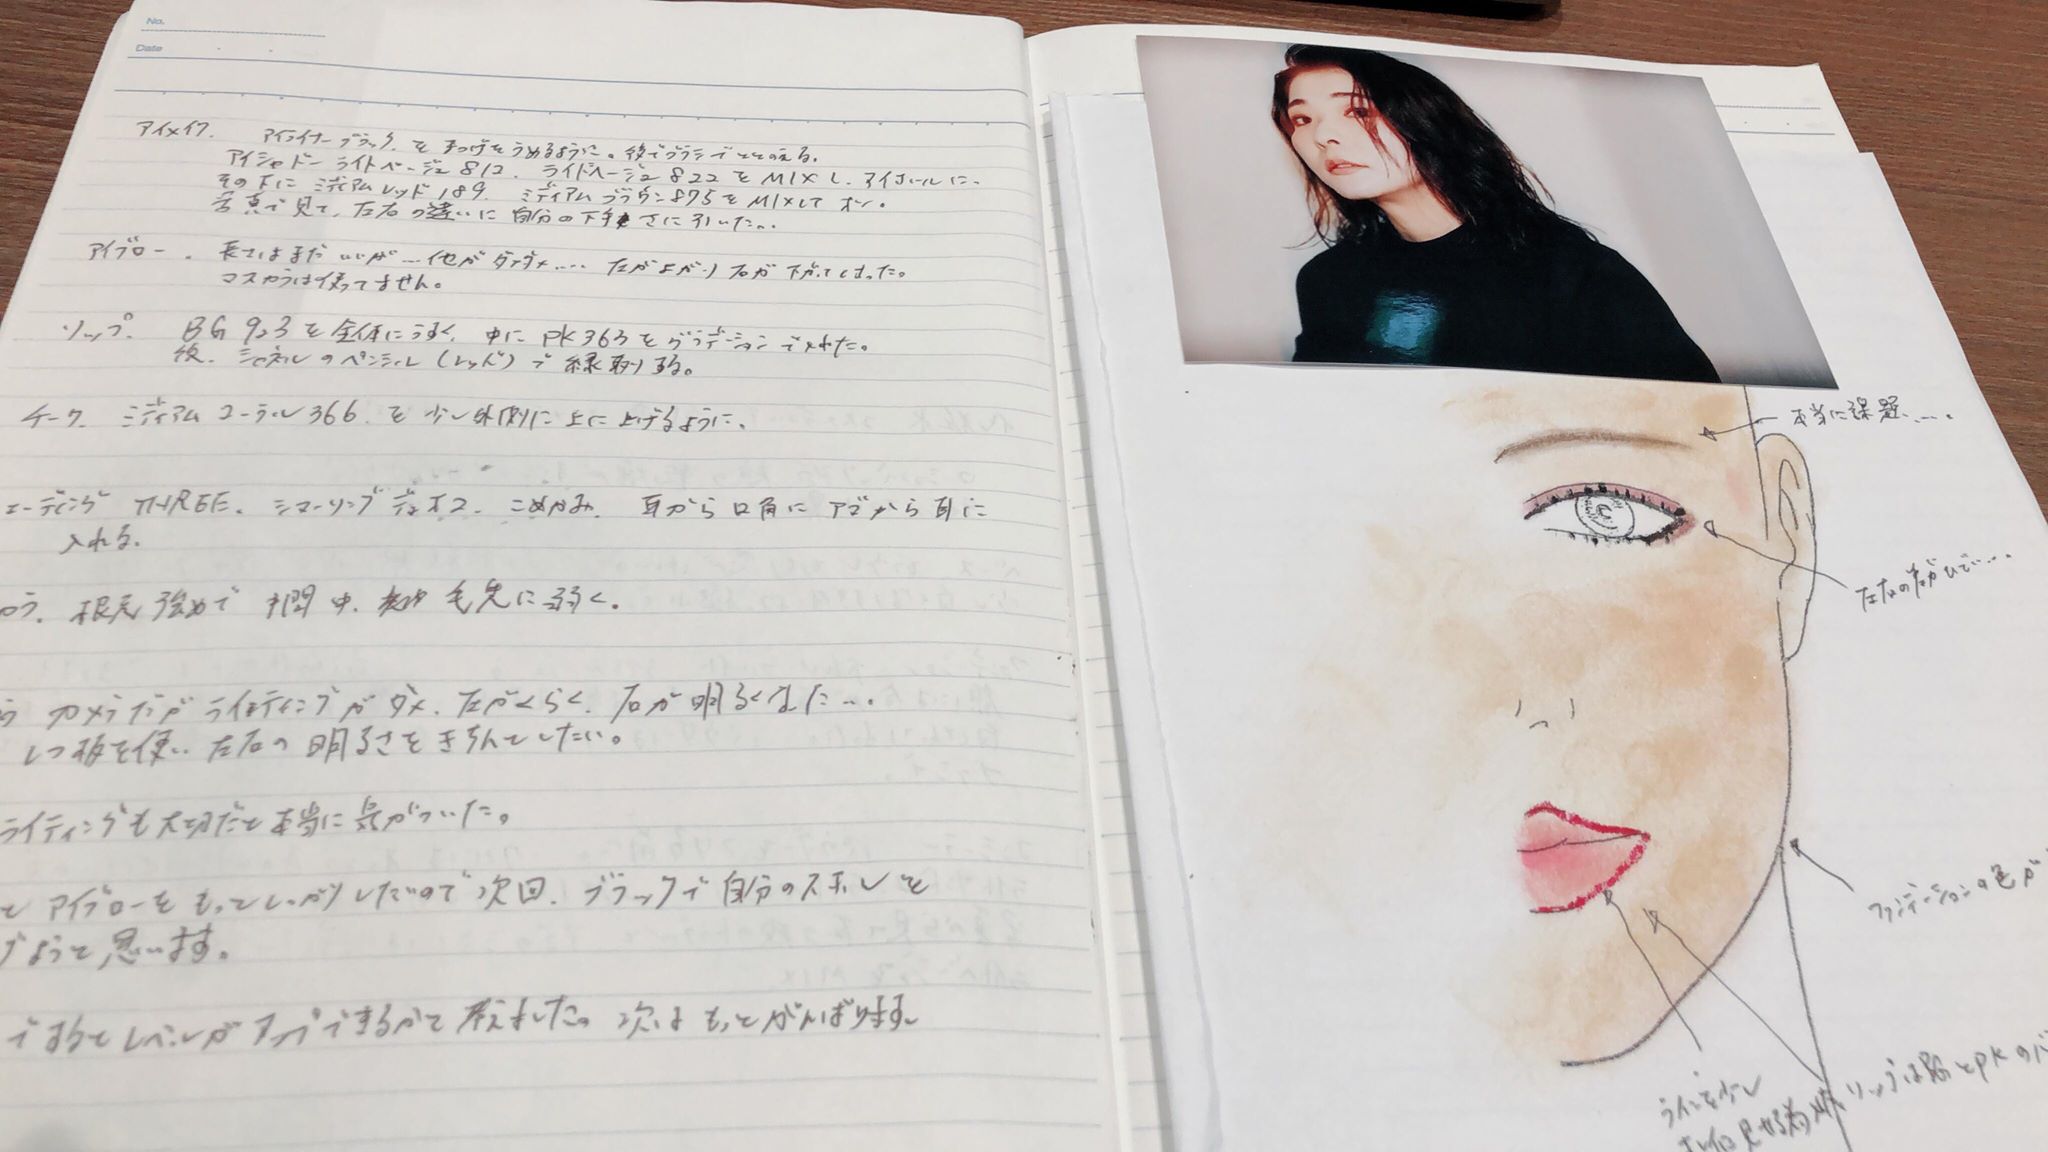 No.
Date
アイメイク. アイライナーブラック を まつげをうめるように。後でブラシでととのえる。
アイシャドー ライトベージュ 812. ライトベージュ 822 を MIX し. アイホールに.
その下に ミディアムレッド 189. ミディアム ブラウン 875 を MIXして オン.
写真で見て、左右の違いに 自分の下手さに引いた...
アイブロー. 長さはまだいいが...他がダメ.... 左が上がり 右が下がってしまった。
マスカラは使ってません。
リップ. BG 923 を 全体にうすく, 中に PK 363 を グラデーション で入れた。
後. シャネル のペンシル (レッド) で 縁取りする。
チーク. ミディアム コーラル 366. を 少し外側に 上に上げるように.
ェーディング THREE. シマーリング デュオ 2. こめかみ. 耳から口角に アゴから耳に
入れる.
根元 強めで 中間 中. 毛先に弱く.
カメラだが ライティングが ダメ. 左がくらく. 右が明るくなった...
を使い 左右の 明るさを きちんとしたい。
ライティングも大切だと本当に気がついた。
と アイブローを もっとしっかりしたいので 次回. ブラックで 自分の
ようと思います。
レベルが アップできるかと 考えました。次は もっと がんばります。
本当に課題....
左右の差がひどい....
ファンデーションの色が
リップはBGとPKの
ラインを少し